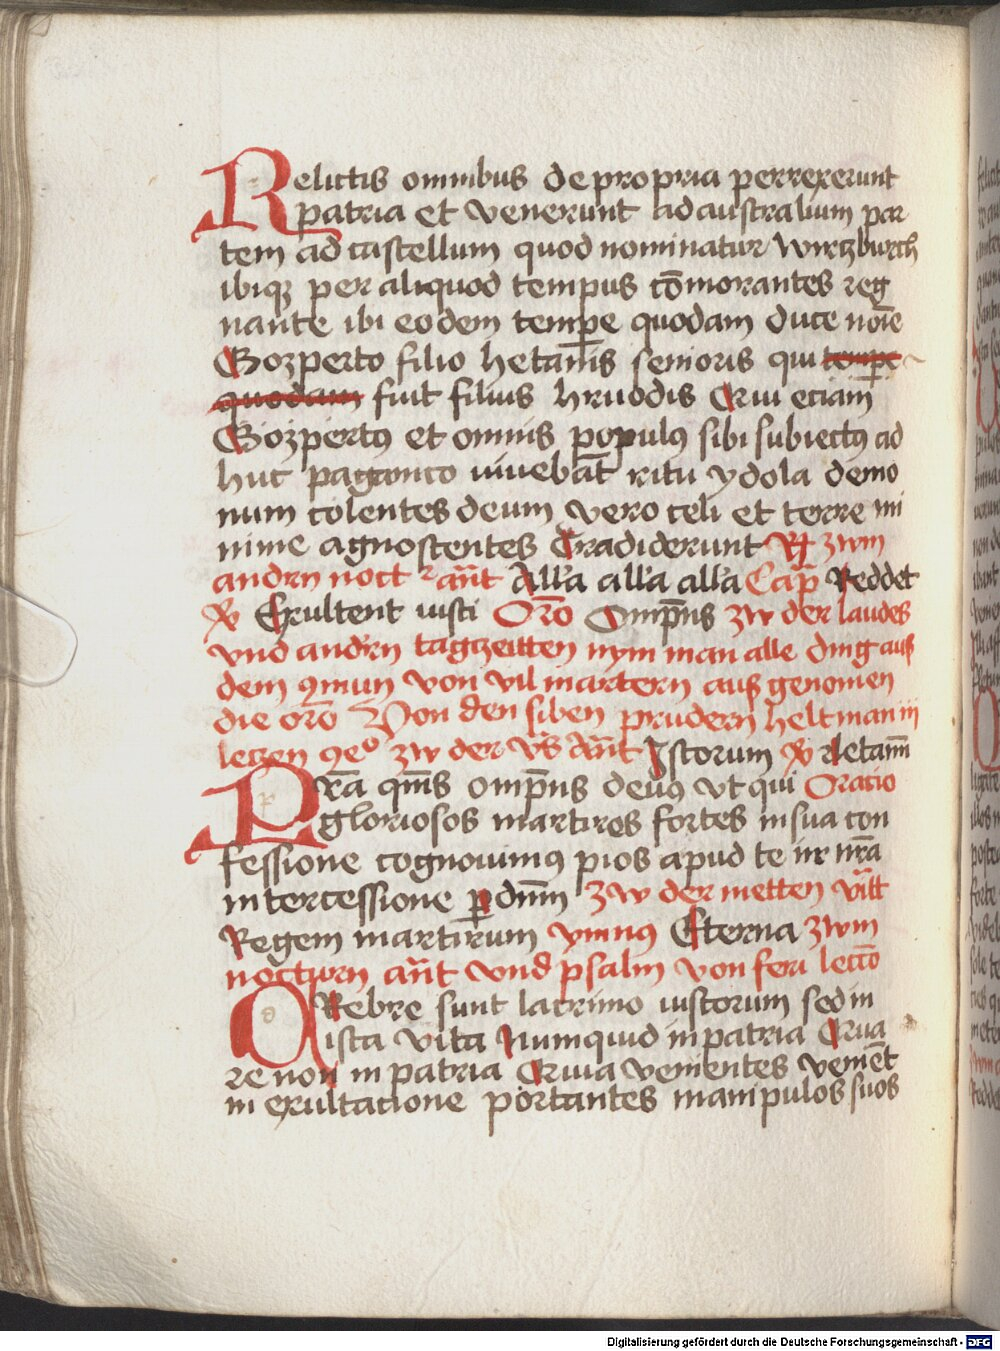 Relictis omnibus de propria perrexerunt
patria et venerunt ad australium par
tem ad castellum quod nominatur wirtzburch
ibiqꝫ per aliquod tempus cōmorantes reg
nante ibi eodem tempe quodam duce noīe
Gozperto filio hetanis senioris qui tempe
quodam fuit filius hruodis Qui eciam
Gozpertꝰ et omnis populꝰ sibi subiectꝰ ad
huc paganico viuebāt ritu ydola demo
num colentes deum vero celi et terre mi
nime agnoscentes Tradiderunt zwm
andrn noct an̄t Alla alla alla Cap̄ Reddet
Exultent iusti Orō Omp̄ns zw der laudes
vnd andrn tagzeitten nym man alle ding aus
dem ꝯmun von vil martern aus genomen
die orō Von den siben prudern helt man iii
leczen zw der an̄t Istorum letamī
Pr̄a qm̄s omp̄ns deus vt qui Oracio
gloriosos martires fortes in sua con
fessione cognouimꝰ pios apud te in nr̄a
intercessione ꝑ dnm̄ zw der metten
Regem martirum ymnꝰ Eterna zwm
nocturn an̄t vnd psalm von feri leccō
Crebre sunt lacrime iustorum sed in
ista vita Numquid in patria Qua
re non in patria Quia venientes venient
in exultacione portantes manipulos suos
Digitalisierung gefördert durch die Deutsche Forschungsgemeinschaft - DFG